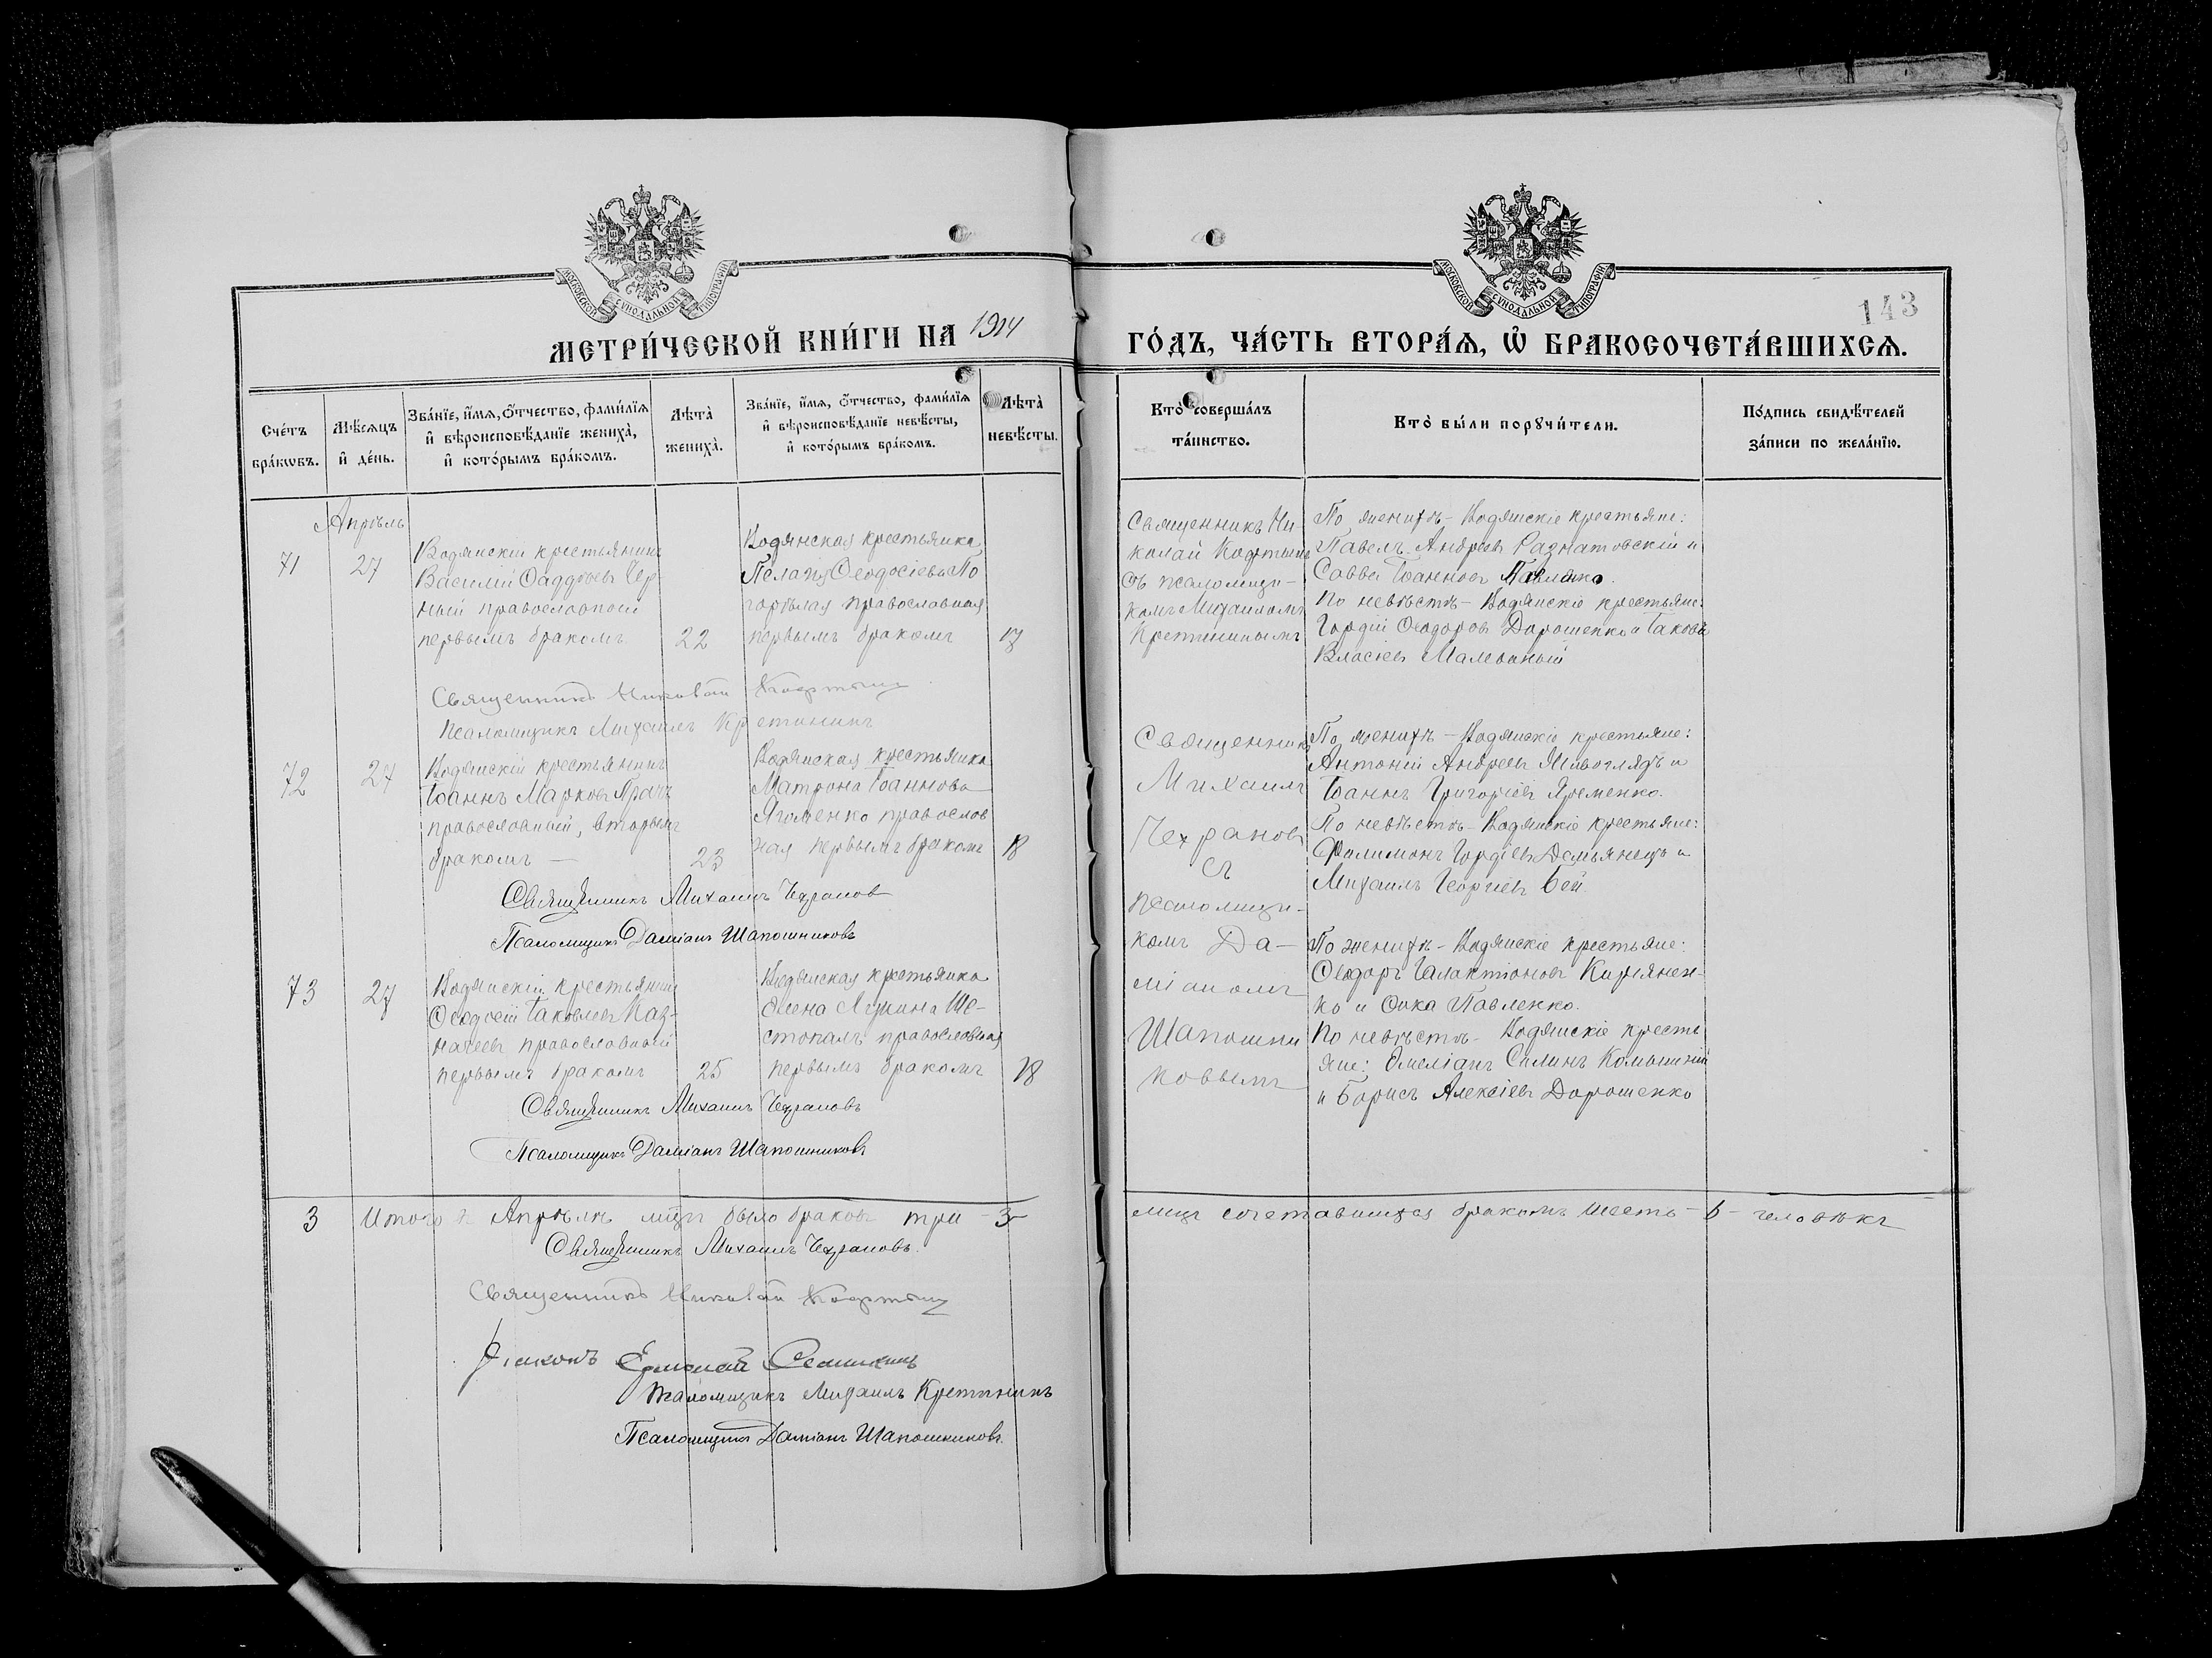 МОСКОВСКОЙ СУНОДАЛЬНОЙ ТИПОГРАФІИ
МОСКОВСКОЙ СУНОДАЛЬНОЙ ТИПОГРАФІИ
143
МЕТРИ́ЧЕСКОЙ КНИ́ГИ НА 1914
ГО́ДЪ, ЧА́СТЬ ВТОРА́Ѧ, Ѽ БРАКОСОЧЕТА́ВШИХСѦ.
Сче́тъ
бра́кѡвъ.
Мѣ́сѧцъ
и҆ де́нь.
Зва́нїе, и҆́мѧ, ѻ҆́тчество, фами́лїѧ
и҆ вѣроисповѣ́данїе жениха̀,
и҆ кото́рымъ бра́комъ.
Лѣта̀
жениха̀.
Зва́нїе, и҆́мѧ, ѻ҆́тчество, фами́лїѧ
и҆ вѣроисповѣ́данїе невѣ́сты,
и҆ кото́рымъ бра́комъ.
Лѣта̀
невѣ́сты.
Кто̀ соверша́лъ
та́инство.
Кто̀ бы́ли порꙋчи́тели.
По́дпись свидѣ́телей
за́писи по жела́нїю.
Апрѣль
71
27
Водянскій крестьянинъ
Василій Фаддѣевъ Чер
ный православный
первымъ бракомъ
22
Водянская крестьянка
Пелагія Ѳеодосіева По
горѣлая православная
первымъ бракомъ
17
Священникъ Ни-
колай
съ псаломщи-
комъ Михаиломъ
Кретининымъ
По женихѣ - Водянскіе крестьяне:
Павелъ Андреевъ Разнатовскій и
Савва Іоанновъ Павленко.
По невѣстѣ - Водянскіе крестьяне:
Гордій Ѳеодоровъ Дорошенко и Іаковъ
Власіевъ Малеваный
Священникъ Николай
Псаломщикъ Михаилъ Кретининъ
72
27
Водянскій крестьянинъ
Іоаннъ Марковъ Прачъ
православный, вторымъ
бракомъ —
23
Водянская крестьянка
Матрона Іоаннова
Ягоменко православ
ная первымъ бракомъ
18
Священникъ
Михаилъ
Чехрановъ
съ
псаломщи-
комъ Да-
міаномъ
Шапошни
ковымъ
По женихѣ - Водянскіе крестьяне:
Антоній Андреевъ Живоглядъ и
Іоаннъ Григоріевъ Яременко.
По невѣстѣ - Водянскіе крестьяне:
Филимонъ Гордіевъ Демьянецъ и
Михаилъ Георгіевъ Бей
Священникъ Михаилъ Чехрановъ
Псаломщикъ Даміанъ Шапошниковъ
73
27
Водянскій крестьянинъ
Ѳеодосій Іаковлевъ Каз-
начеевъ православный
первымъ бракомъ
25
Водянская крестьянка
Елена Лукина Ше-
стопалъ православная
первымъ бракомъ
18
По женихѣ - Водянскіе крестьяне:
Ѳеодоръ Галактіоновъ Кириянен-
ко и Ѳока Павленко.
По невѣстѣ - Водянскіе кресть
яне: Емеліанъ Силинъ Комышный
и Борисъ Алексіевъ Дорошенко
Священникъ Михаилъ Чехрановъ
Псаломщикъ Даміанъ Шапошниковъ
3 Итого въ Апрѣлѣ мцѣ было браковъ три - 3
лицъ сочетавшихся бракомъ шесть - 6 - человѣкъ
Священникъ Михаилъ Чехрановъ.
Священникъ Николай
Діаконъ Ермолай Семикинъ
Псаломщикъ Михаилъ Кретининъ
Псаломщикъ Даміанъ Шапошниковъ.